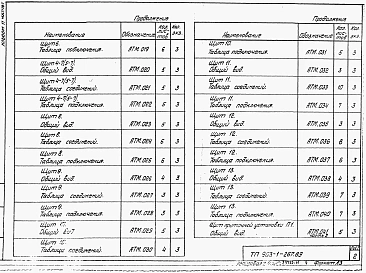 Продолжение
Наименование Обозначение Кол. листов Кол. экз.
Щит 6.
Таблица подключения. АТМ.019 6 3
Щит 4-7(5-7).
Общий вид. АТМ.020 5 3
Щит 4-7(5-7)
Таблица соединений. АТМ.021 5 3
Щит 4-7(5-7)
Таблица подключения. АТМ.022 6 3
Щит 8.
Общий вид. АТМ.023 5 3
Щит 8.
Таблица соединений. АТМ.024 6 3
Щит 8.
Таблица подключения. АТМ.025 6 3
Щит 9.
Общий вид. АТМ.026 4 3
Щит 9.
Таблица соединений. АТМ.027 3
Щит 9.
Таблица подключения. АТМ.028 3 3
Щит 10.
Общий вид. АТМ.029 5 3
Щит 10.
Таблица соединений. АТМ.030 4 3
Продолжение
Наименование Обозначение Кол. листов Кол. экз.
Щит 10.
Таблица подключения. АТМ.031 5 3
Щит 11.
Общий вид. АТМ.032 3
Щит 11.
Таблица соединений. АТМ.033 10 3
Щит 11.
Таблица подключения. АТМ.034 7 3
Щит 12.
Общий вид. АТМ.035 3 3
Щит 12.
Таблица соединений. АТМ.036 8 3
Щит 12.
Таблица подключения. АТМ.037 6 3
Щит 13.
Общий вид. АТМ.038 4 3
Щит 13.
Таблица соединений. АТМ.039 7 3
Щит 13.
Таблица подключения. АТМ.040 7 3
Щит приточной установки П1.
Общий вид. АТМ.041 5 3
ТП 903-1-267.89
Формат А3